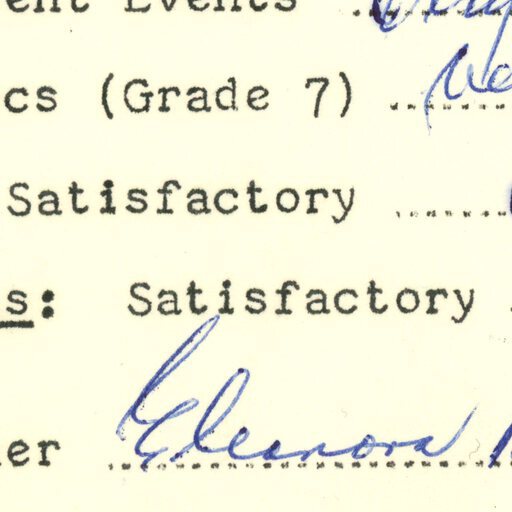 ent Events
cs (Grade 7)
Satisfactory
s: Satisfactory
er Eleanora